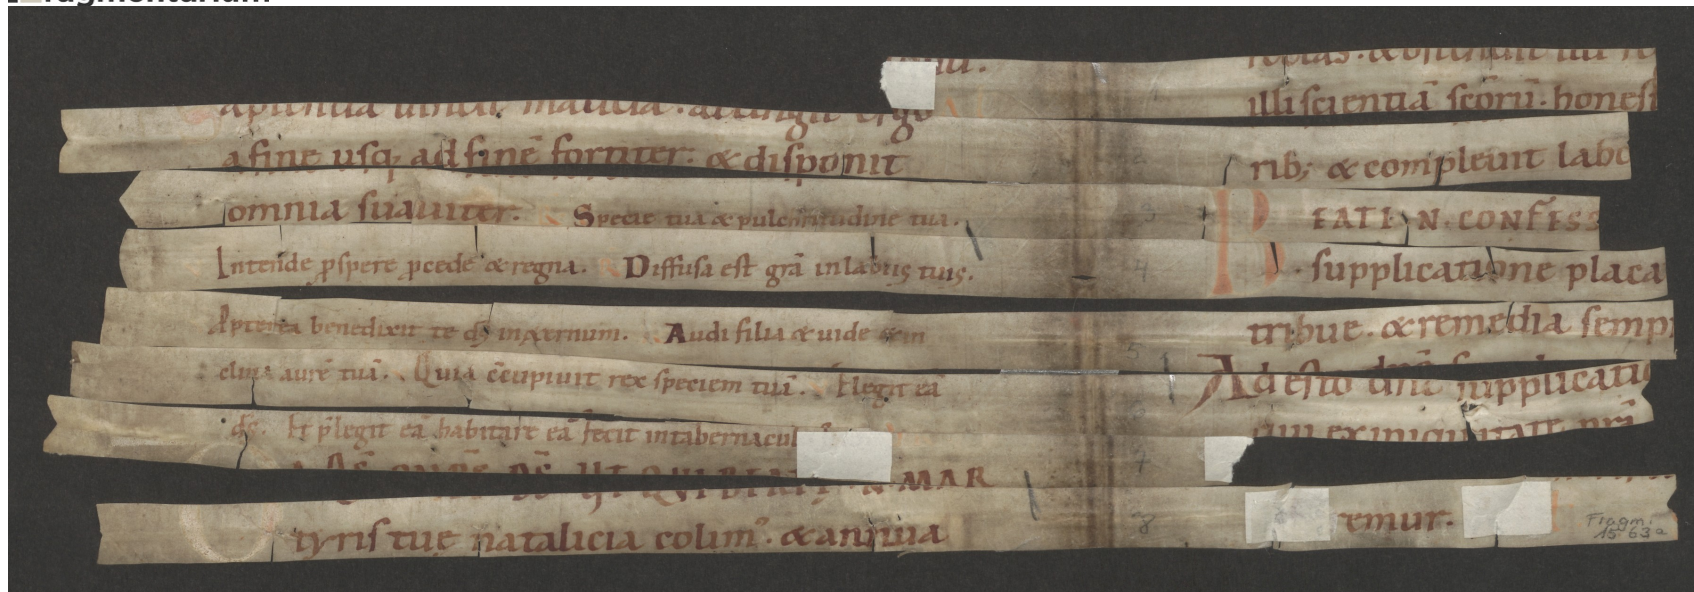 apientia uincit malicia . attingit ergo
a fine usq; ad finē fortiter . & disponit
omnia suauiter. Specie tua & pulchritudine tua.
Intende ꝓspere ꝓcede & regna. Diffusa est grā in labiis tuis.
Aptenea benedixit te ds̄ in æternum. Audi filia & uide & in
clina aurē tuā. Quia c̄cupiuit rex speciem tuā. Elegit eā
ds̄. Et p̄legit eā habitare eā fecit in tabernacul
QUI BEATI N MAR
tyris tuę natalicia colim' . & annua
illi scientiā scōrū . honest
rib; & compleuit labo
BEATI N CONFESS
supplicatione placa
tribue . & remedia semp
Adesto dn̄e supplicati
qui ex iniquitate nr̄ī
remur.
1
2
3
4
5
6
7
8
Fragm.
15.63a